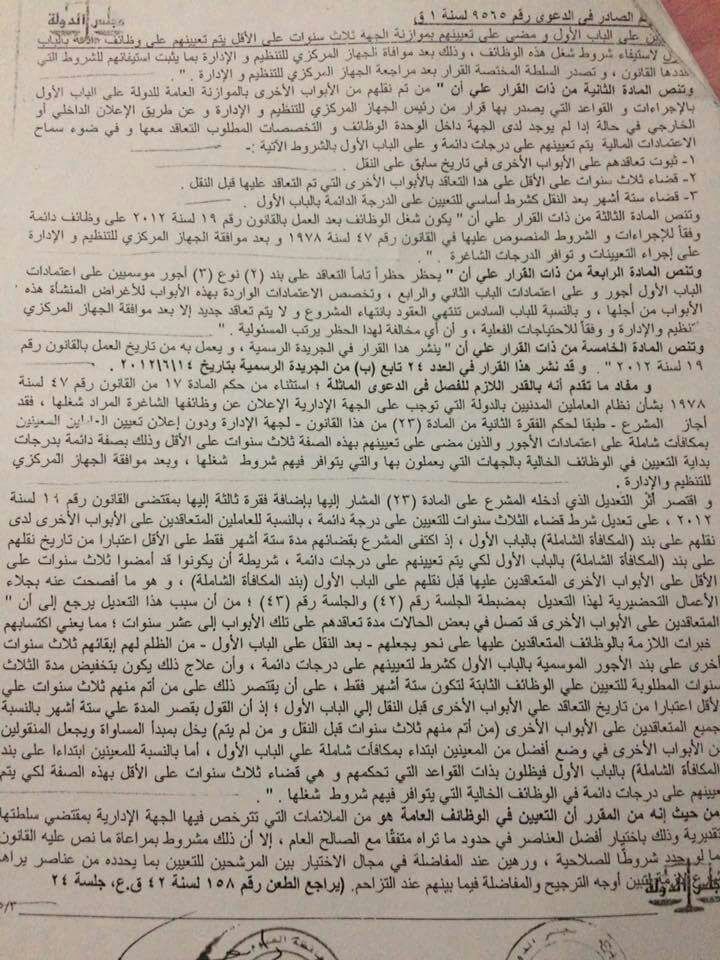 مجلس الدولة
الصادر في الدعوى رقم ٩٥٦٥ لسنة ١ ق
على الباب الأول و مضى على تعيينهم بموازنة الجهة ثلاث سنوات على الأقل يتم تعيينهم على وظائف بالباب
لاستيفاء شروط شغل هذه الوظائف ، وذلك بعد موافاة الجهاز المركزي للتنظيم و الإدارة بما يثبت استيفائهم للشروط التي
القانون ، و تصدر السلطة المختصة القرار بعد مراجعة الجهاز المركزي للتنظيم و الإدارة . "
وتنص المادة الثانية من ذات القرار علي أن " من تم نقلهم من الأبواب الأخرى بالموازنة العامة للدولة على الباب الأول
بالإجراءات و القواعد التي يصدر بها قرار من رئيس الجهاز المركزي للتنظيم و الإدارة و عن طريق الإعلان الداخلي أو
الخارجي في حالة إذا لم يوجد لدى الجهة داخل الوحدة الوظائف و التخصصات المطلوب التعاقد معها و في ضوء سماح
الاعتمادات المالية يتم تعيينهم على درجات دائمة و على الباب الأول بالشروط الآتية :-
١- ثبوت تعاقدهم على الأبواب الأخرى في تاريخ سابق على النقل .
٢- قضاء ثلاث سنوات على الأقل على هذا التعاقد بالأبواب الأخرى التي تم التعاقد عليها قبل النقل .
٣- قضاء ستة أشهر بعد النقل كشرط أساسي للتعيين على الدرجة الدائمة بالباب الأول .
وتنص المادة الثالثة من ذات القرار علي أن " يكون شغل الوظائف بعد العمل بالقانون رقم ١٩ لسنة ٢٠١٢ على وظائف دائمة
وفقاً للإجراءات و الشروط المنصوص عليها في القانون رقم ٤٧ لسنة ١٩٧٨ و بعد موافقة الجهاز المركزي للتنظيم و الإدارة
على إجراء التعيينات و توافر الدرجات الشاغرة . "
وتنص المادة الرابعة من ذات القرار علي أن " يحظر حظراً تاماً التعاقد على بند (٢) نوع (٣) أجور موسميين على اعتمادات
الباب الأول أجور و على اعتمادات الباب الثاني والرابع ، وتخصص الاعتمادات الواردة بهذه الأبواب للأغراض المنشأة هذه
الأبواب من أجلها ، و بالنسبة للباب السادس تنتهي العقود بانتهاء المشروع و لا يتم تعاقد جديد إلا بعد موافقة الجهاز المركزي
للتنظيم والإدارة و وفقاً للاحتياجات الفعلية ، و أن أي مخالفة لهذا الحظر يرتب المسئولية . "
وتنص المادة الخامسة من ذات القرار علي أن " ينشر هذا القرار في الجريدة الرسمية ، و يعمل به من تاريخ العمل بالقانون رقم
١٩ لسنة ٢٠١٢ " . و قد نشر هذا القرار في العدد ٢٤ تابع (ب) من الجريدة الرسمية بتاريخ ٢٠١٢/٦/١٤ .
و مفاد ما تقدم أنه بالقدر اللازم للفصل فى الدعوى الماثلة ؛ استثناء من حكم المادة ١٧ من القانون رقم ٤٧ لسنة
١٩٧٨ بشأن نظام العاملين المدنيين بالدولة التي توجب على الجهة الإدارية الإعلان عن وظائفها الشاغرة المراد شغلها ، فقد
أجاز المشرع - طبقا لحكم الفقرة الثانية من المادة (٢٣) من هذا القانون - لجهة الإدارة ودون إعلان تعيين العاملين المعينين
بمكافآت شاملة على اعتمادات الأجور والذين مضى على تعيينهم بهذه الصفة ثلاث سنوات على الأقل وذلك بصفة دائمة بدرجات
بداية التعيين في الوظائف الخالية بالجهات التي يعملون بها والتي يتوافر فيهم شروط شغلها ، وبعد موافقة الجهاز المركزي
للتنظيم والإدارة .
و اقتصر أثر التعديل الذي أدخله المشرع على المادة (٢٣) المشار إليها بإضافة فقرة ثالثة إليها بمقتضى القانون رقم ١٩ لسنة
٢٠١٢ ، على تعديل شرط قضاء الثلاث سنوات للتعيين على درجة دائمة ، بالنسبة للعاملين المتعاقدين على الأبواب الأخرى لدى
نقلهم على بند (المكافأة الشاملة) بالباب الأول ، إذ اكتفى المشرع بقضائهم مدة ستة أشهر فقط على الأقل اعتبارا من تاريخ نقلهم
على بند (المكافأة الشاملة) بالباب الأول لكي يتم تعيينهم على درجات دائمة ، شريطة أن يكونوا قد أمضوا ثلاث سنوات على
الأقل على الأبواب الأخرى المتعاقدين عليها قبل نقلهم على الباب الأول (بند المكافأة الشاملة) ، و هو ما أفصحت عنه بجلاء
الأعمال التحضيرية لهذا التعديل بمضبطة الجلسة رقم (٤٢) والجلسة رقم (٤٣) ؛ من أن سبب هذا التعديل يرجع إلى أن "
المتعاقدين على الأبواب الأخرى قد تصل في بعض الحالات مدة تعاقدهم على تلك الأبواب إلى عشر سنوات ؛ مما يعني اكتسابهم
خبرات اللازمة بالوظائف المتعاقدين عليها على نحو يجعلهم - بعد النقل على الباب الأول - من الظلم لهم إبقائهم ثلاث سنوات
أخرى على بند الأجور الموسمية بالباب الأول كشرط لتعيينهم على درجات دائمة ، وأن علاج ذلك يكون بتخفيض مدة الثلاث
سنوات المطلوبة للتعيين على الوظائف الثابتة لتكون ستة أشهر فقط ، على أن يقتصر ذلك على من أتم منهم ثلاث سنوات علي
الأقل اعتبارا من تاريخ التعاقد علي الأبواب الأخرى قبل النقل إلي الباب الأول ؛ إذ أن القول بقصر المدة علي ستة أشهر بالنسبة
جميع المتعاقدين على الأبواب الأخرى (من أتم منهم ثلاث سنوات قبل النقل و من لم يتم) يخل بمبدأ المساواة ويجعل المنقولين
من الأبواب الأخرى في وضع أفضل من المعينين ابتداء بمكافآت شاملة علي الباب الأول ، أما بالنسبة للمعينين ابتداءا على بند
(المكافأة الشاملة) بالباب الأول فيظلون بذات القواعد التي تحكمهم و هي قضاء ثلاث سنوات على الأقل بهذه الصفة لكي يتم
تعيينهم على درجات دائمة في الوظائف الخالية التي يتوافر فيهم شروط شغلها . " .
من حيث إنه من المقرر أن التعيين في الوظائف العامة هو من الملائمات التي تترخص فيها الجهة الإدارية بمقتضي سلطتها
تقديرية وذلك باختيار أفضل العناصر في حدود ما تراه متفقا مع الصالح العام ، إلا أن ذلك مشروط بمراعاة ما نص عليه القانون
شروطا للصلاحية ، ورهين عند المفاضلة في مجال الاختيار بين المرشحين للتعيين بما يحدده من عناصر يراها
لتبين أوجه الترجيح والمفاضلة فيما بينهم عند التزاحم. (يراجع الطعن رقم ١٥٨ لسنة ٤٢ ق.ع، جلسة ٢٤
مجلس الدولة